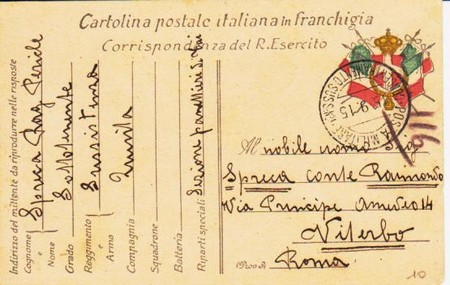 Cartolina postale italiana in franchigia
Corrispondenza del R. Esercito
Indirizzo del mittente da riprodurre nelle risposte
Cognome Spreca Rag. Pericle
e
Nome
Grado Sottotenente
Reggimento Sussistenza
o
Arma
Compagnia
Squadrone
Batteria
Riparti speciali Sezione panettieri
Al nobile uomo
Spreca conte Raimondo
Via Principe Amedeo 14
Viterbo
(Prov. di) Roma
10